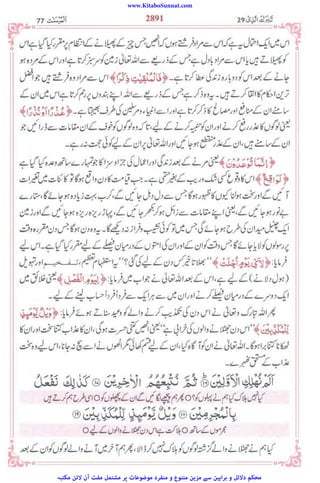 www.KitaboSunnat.com
المرسلت 77
2891
تبرك الذي 29
اس میں ایک احتمال یہ ہے کہ اس سے مراد وہ فرشتے ہوں کہ انھیں جس چیز کے پھیلانے کے انتظام پر مقرر کیا گیا ہے اس
کو پھیلاتے ہیں یا اس سے مراد بادل ہے جس کے ذریعے سے اللہ تعالیٰ زمین کو سرسبز کرتا ہے اور اس کے مردہ ہو
جانے کے بعد اس کو دوبارہ زندگی عطا کرتا ہے۔ ﴿فَالْمُلْقِيٰتِ ذِكْرًا﴾ اس سے مراد وہ فرشتے ہیں جو افضل
ترین احکام کا القا کرتے ہیں۔ یہ وہ ذکر ہے جس کے ذریعے سے اللہ اپنے بندوں پر رحم کرتا ہے، اس میں ان کے
سامنے ان کے منافع اور مصالح کا ذکر کرتا ہے اور اسے انبیاء و مرسلین کی طرف بھیجتا ہے۔ ﴿عُذْرًا اَوْ نُذْرًا﴾
یعنی لوگوں کا عذر رفع کرنے اور ان کو تنبیہ کرنے کے لیے، تاکہ وہ لوگوں کو خوف کے ان مقامات سے ڈرائیں جو
ان کے سامنے ہیں، ان کے عذر منقطع ہو جائیں اور اللہ تعالیٰ پر ان کے لیے کوئی حجت نہ رہے۔
﴿اِنَّمَا تُوْعَدُوْنَ﴾ یعنی مرنے کے بعد زندگی اور اعمال کی جزا و سزا کا جو تمہارے ساتھ وعدہ کیا گیا ہے
﴿لَوَاقِعٌ﴾ اس کا وقوع کسی شک و ریب کے بغیر حتمی ہے۔ جب قیامت کا دن واقع ہوگا تو کائنات میں تغیرات
آئیں گے اور سخت ہولناکیوں کا ظہور ہوگا جس سے دل دہل جائیں گے، کرب بہت زیادہ ہو جائے گا، ستارے
بے نور ہو جائیں گے، یعنی اپنے مقامات سے زائل ہو کر بکھر جائیں گے، پہاڑ ریزہ ریزہ ہو جائیں گے اور زمین
ایک چٹیل میدان کی طرح ہو جائے گی جس میں تو کوئی نشیب و فراز نہ دیکھے گا۔ یہ وہ دن ہوگا جس دن مقررہ وقت
پر رسولوں کو لایا جائے گا جس وقت کو ان کے اور ان کی امتوں کے درمیان فیصلے کے لیے مقرر کیا گیا ہے۔ اس لیے
فرمایا: ﴿لِاَيِّ يَوْمٍ اُجِّلَتْ﴾ "بھلا تاخیر کس دن کے لیے کی گئی؟" یہ استفہام تعظیم، تفخیم اور تہویل
(ہول دلانے) کے لیے ہے، اس کے بعد اللہ تعالیٰ نے جواب میں فرمایا: ﴿لِيَوْمِ الْفَصْلِ﴾ یعنی خلائق میں
ایک دوسرے کے درمیان فیصلے کرنے اور ان میں سے ہر ایک سے فرداً فرداً حساب لینے کے لیے۔
پھر اللہ تبارک و تعالیٰ نے اس دن کی تکذیب کرنے والے کو وعید سناتے ہوئے فرمایا: ﴿وَيْلٌ يَّوْمَئِذٍ
لِّلْمُكَذِّبِيْنَ﴾ "اس دن جھٹلانے والوں کی خرابی ہے" یعنی انھیں کتنی حسرت ہوگی، ان کا عذاب کتنا سخت اور ان کا
ٹھکانا کتنا برا ہوگا۔ اللہ تعالیٰ نے ان کو آگاہ کیا، ان کے لیے قسم کھائی مگر انھوں نے اسے سچ نہ جانا، اس لیے وہ سخت
عذاب کے مستحق ٹھہرے۔
اَلَمْ نُهْلِكِ الْاَوَّلِيْنَ ۞ ثُمَّ نُتْبِعُهُمُ الْاٰخِرِيْنَ ۞ كَذٰلِكَ نَفْعَلُ
کیا نہیں ہلاک کیا ہم نے پہلوں کو؟ ○ پھر ہم پیچھے لگائیں گے ان کے پچھلوں کو ○ اسی طرح ہم کرتے ہیں
بِالْمُجْرِمِيْنَ ۞ وَيْلٌ يَّوْمَئِذٍ لِّلْمُكَذِّبِيْنَ ۞
مجرموں کے ساتھ ○ ہلاکت ہے اس دن جھٹلانے والوں کے لیے ○
کیا ہم نے جھٹلانے والے گزشتہ لوگوں کو ہلاک نہیں کر ڈالا، پھر ہم آخر میں آنے والے لوگوں کو ان کے بعد
محکم دلائل و براہین سے مزین متنوع و منفرد موضوعات پر مشتمل مفت آن لائن مکتبہ